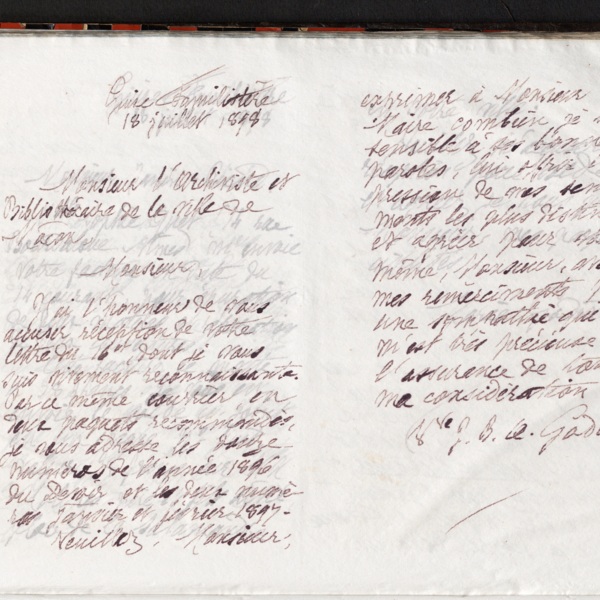 Guise Familistère
18 juillet 1898
Monsieur l'Archiviste et
Bibliothécaire de la ville de
Macon
Monsieur,
J'ai l'honneur de vous
accuser réception de votre
lettre du 16 dont je vous
suis vivement reconnaissante.
Par ce même courrier en
deux paquets recommandés,
je vous adresse les douze
numéros de l'année 1896
du Devoir et les deux numé-
ros janvier et février 1897.
Veuillez, Monsieur,
exprimer à Monsieur
Maire combien je
sensible à ses bonnes
paroles, lui offrir
pression de mes sen
ments les plus distin
et agréer pour vous
même, Monsieur, av
mes remerciments
une sympathie qui
m'est très précieuse
l'assurance de tou
ma considération
Vve J. B. A. God